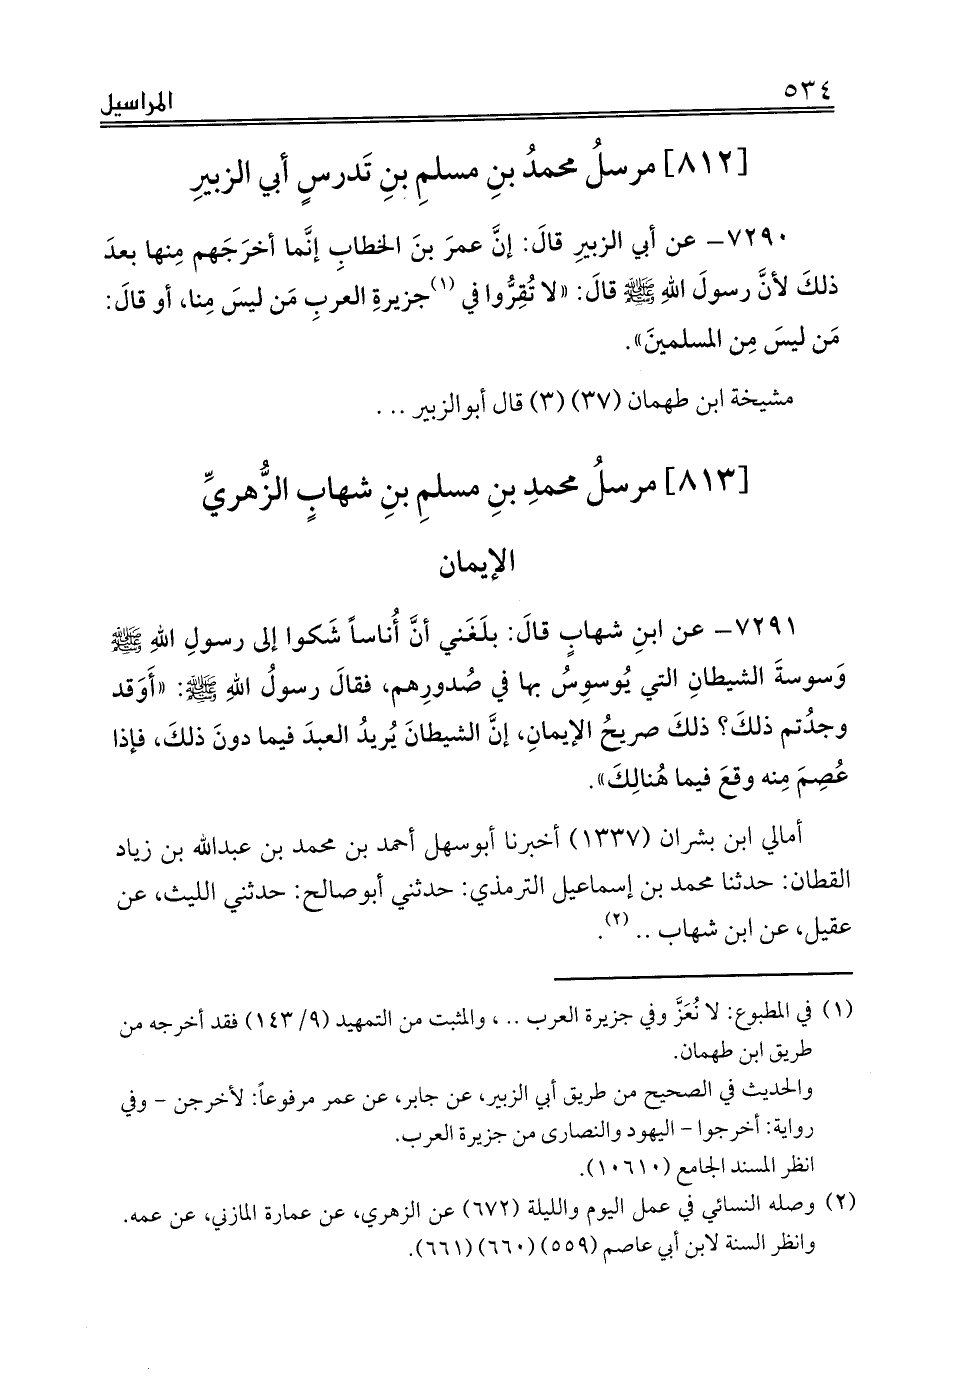 ٥٣٤
المراسيل
[٨١٢] مرسلُ محمدُ بنِ مسلمِ بنِ تَدرسٍ أبي الزبيرِ
٧٢٩٠– عن أبي الزبيرِ قالَ: إنَّ عمرَ بنَ الخطابِ إنَّما أخرَجَهم مِنها بعدَ
ذلكَ لأنَّ رسولَ اللهِ ﷺ قالَ: «لا تُقِرُّوا في (١) جزيرةِ العربِ مَن ليسَ مِنا، أو قالَ:
مَن ليسَ مِن المسلمينَ».
مشيخة ابن طهمان (٣٧) (٣) قال أبو الزبير ...
[٨١٣] مرسلُ محمدِ بنِ مسلمِ بنِ شهابٍ الزُّهريِّ
الإيمان
٧٢٩١– عن ابنِ شهابٍ قالَ: بلَغَني أنَّ أُناساً شَكوا إلى رسولِ اللهِ ﷺ
وَسوسةَ الشيطانِ التي يُوسوِسُ بها في صُدورِهم، فقالَ رسولُ اللهِ ﷺ: «أَوَقد
وجدُتم ذلكَ؟ ذلكَ صريحُ الإيمانِ، إنَّ الشيطانَ يُريدُ العبدَ فيما دونَ ذلكَ، فإذا
عُصِمَ مِنه وقعَ فيما هُنالِكَ».
أمالي ابن بشران (١٣٣٧) أخبرنا أبوسهل أحمد بن محمد بن عبدالله بن زياد
القطان: حدثنا محمد بن إسماعيل الترمذي: حدثني أبوصالح: حدثني الليث، عن
عقيل، عن ابن شهاب .. (٢).
(١) في المطبوع: لا نُعَزَّ وفي جزيرة العرب .. ، والمثبت من التمهيد (٩/ ١٤٣) فقد أخرجه من
طريق ابن طهمان.
والحديث في الصحيح من طريق أبي الزبير، عن جابر، عن عمر مرفوعاً: لأخرجن – وفي
رواية: أخرجوا – اليهود والنصارى من جزيرة العرب.
انظر المسند الجامع (١٠٦١٠).
(٢) وصله النسائي في عمل اليوم والليلة (٦٧٢) عن الزهري، عن عمارة المازني، عن عمه.
وانظر السنة لابن أبي عاصم (٥٥٩) (٦٦٠) (٦٦١).